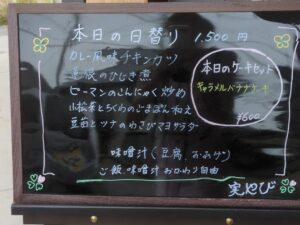 本日の日替り 1,500円
カレー風味チキンカツ
のひじき煮
ピーマンのこんにゃく炒め
小松菜とちくわのごまぽん和え
豆苗とツナのわさびマヨサラダ
味噌汁(豆腐、おあげ)
ご飯 味噌汁おかわり自由
本日のケーキセット
キャラメルバナナケーキ
¥600